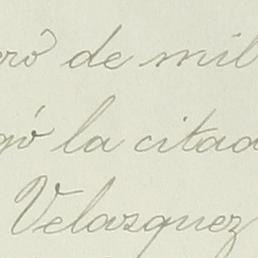 ero de mil
gó la citad
Velazquez